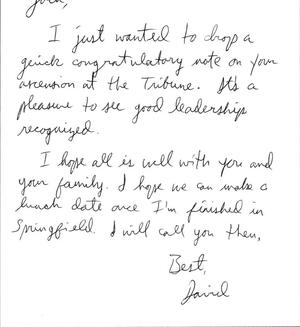 I just wanted to drop a
quick congratulatory note on your
ascension at the Tribune. It's a
pleasure to see good leadership
recognized.
I hope all is well with you and
your family. I hope we can make a
lunch date once I'm finished in
Springfield. I will call you then,
Best,
David